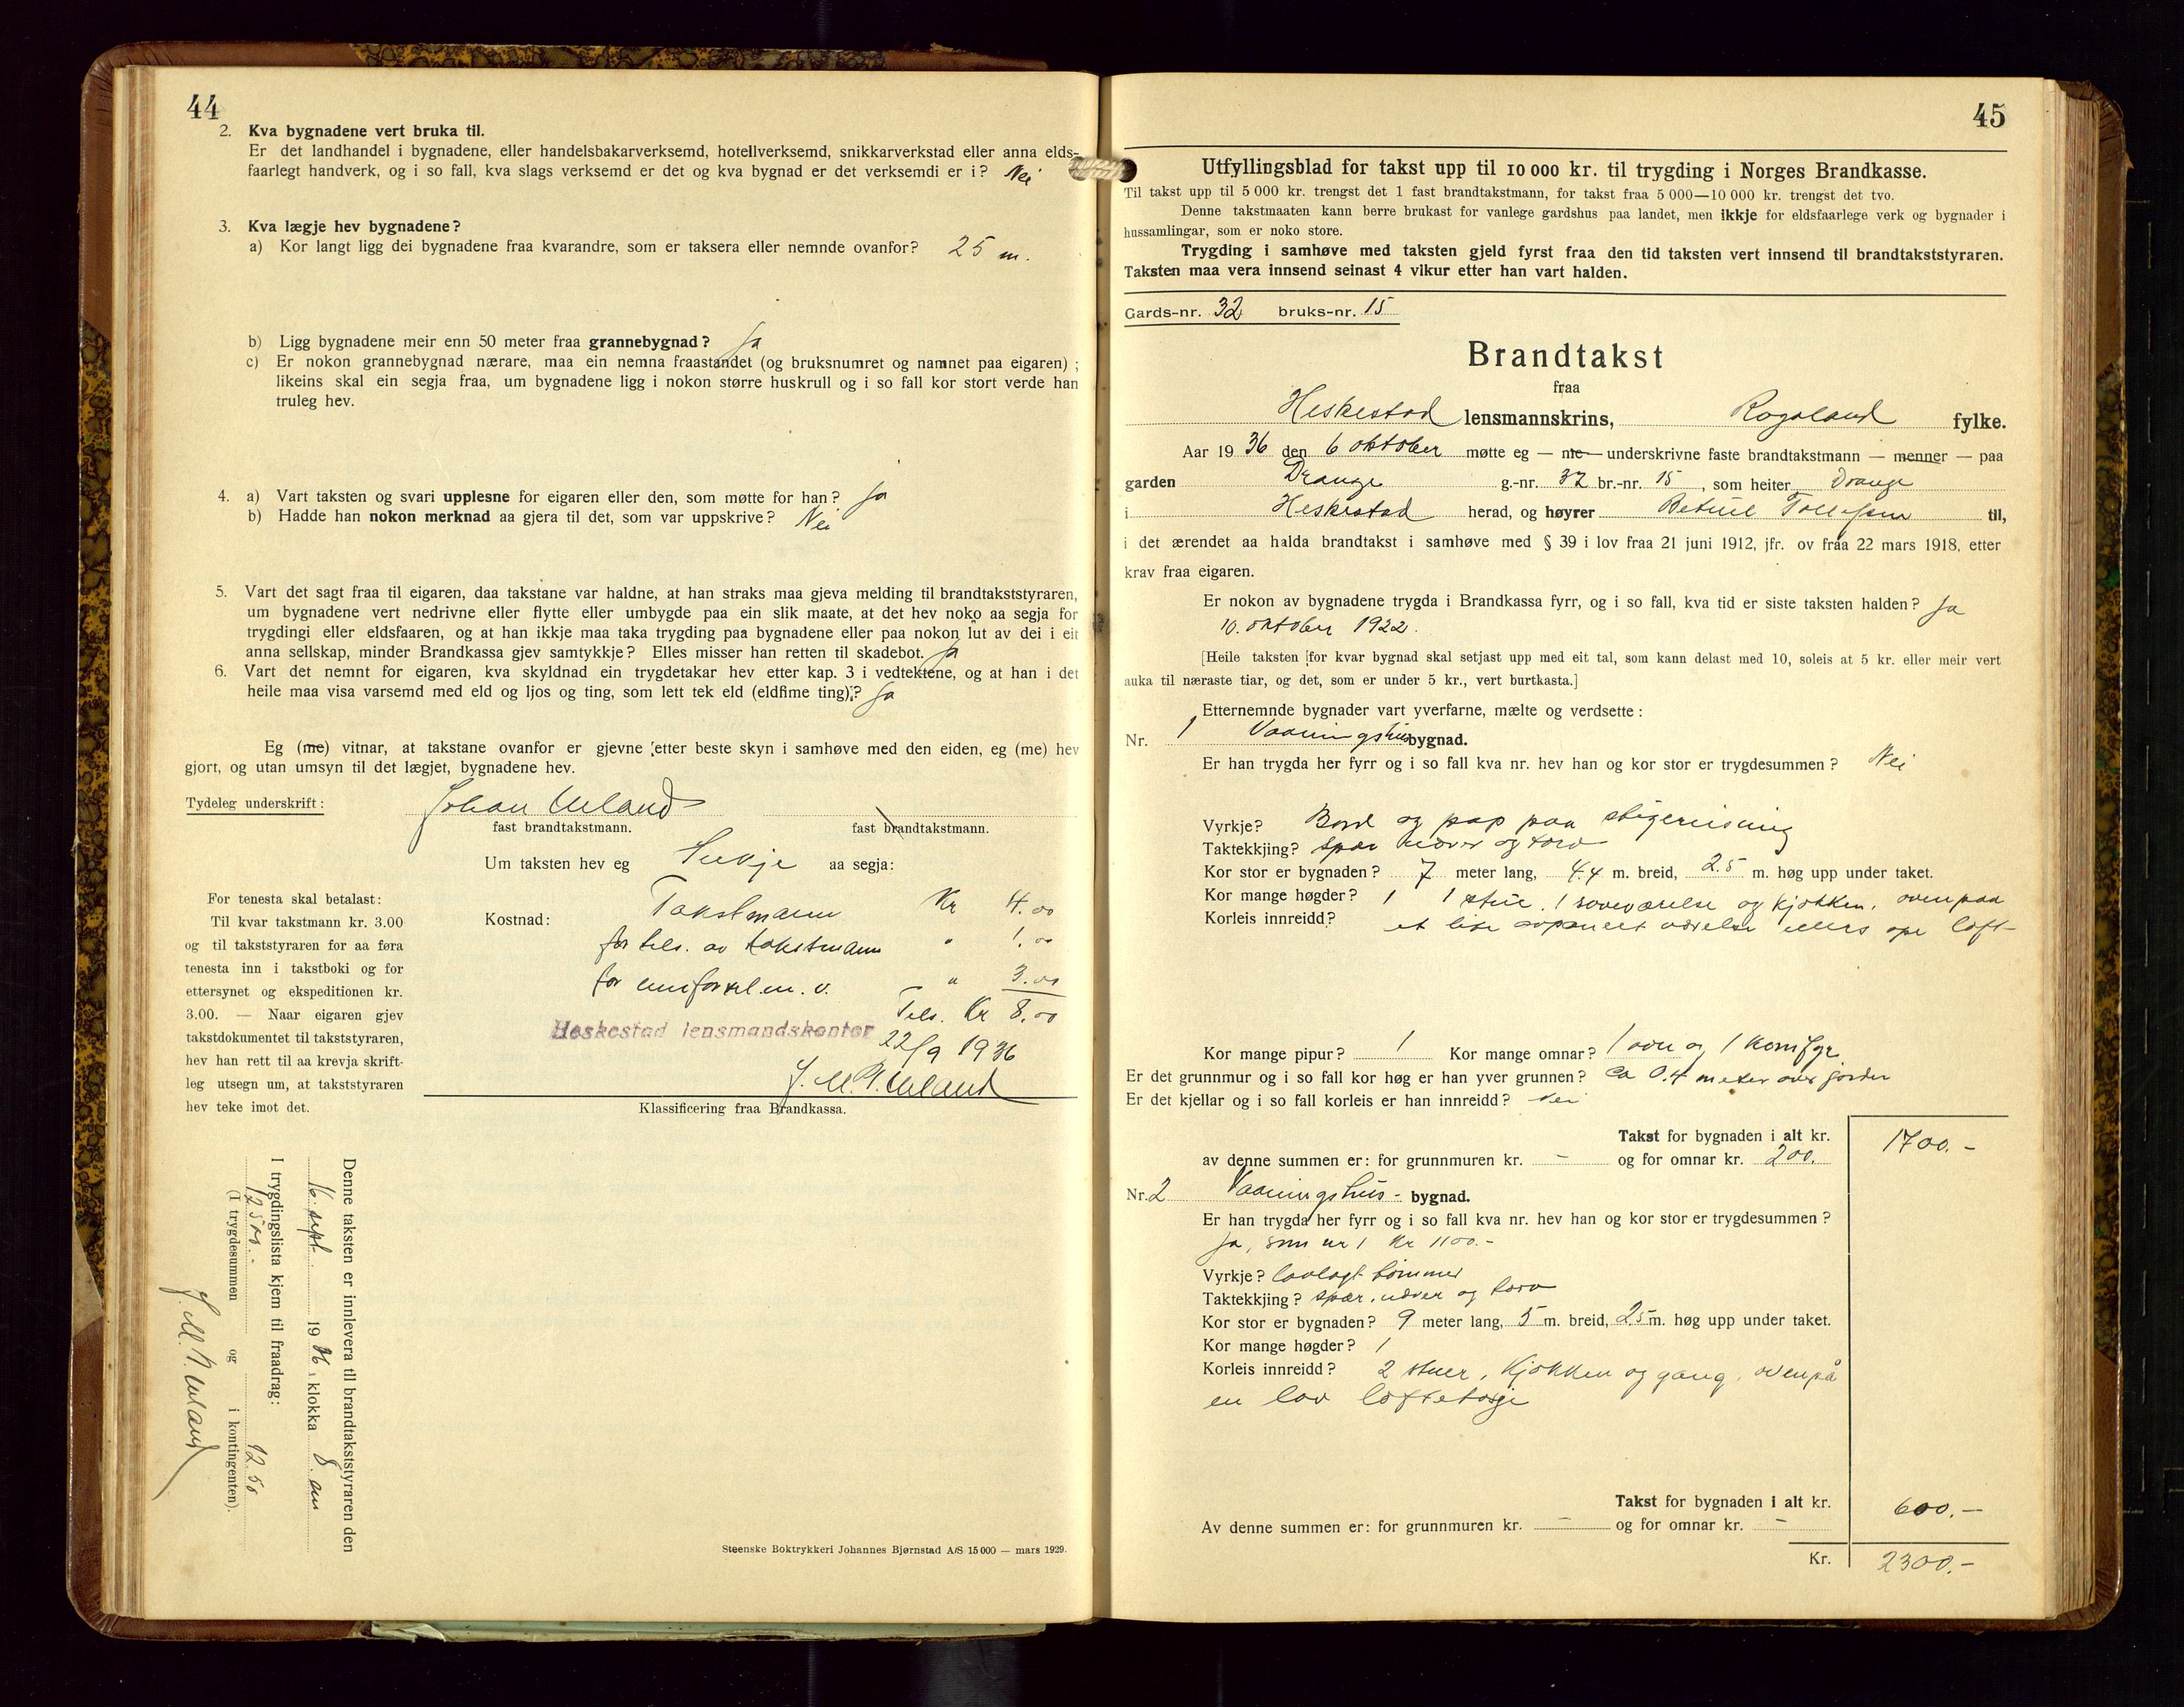 44
2. Kva bygnadene vert bruka til.
Er det landhandel i bygnadene, eller handelsbakarverksemd, hotellverksemd, snikkarverkstad eller anna elds-
faarlegt handverk, og i so fall, kva slags verksemd er det og kva bygnad er det verksemdi er i? Nei
3. Kva lægje hev bygnadene?
a) Kor langt ligg dei bygnadene fraa kvarandre, som er taksera eller nemnde ovanfor? 25 m.
b) Ligg bygnadene meir enn 50 meter fraa grannebygnad? Ja
c) Er nokon grannebygnad nærare, maa ein nemna fraastandet (og bruksnumret og namnet paa eigaren) ;
likeins skal ein segja fraa, um bygnadene ligg i nokon større huskrull og i so fall kor stort verde han
truleg hev.
4. a) Vart taksten og svari upplesne for eigaren eller den, som møtte for han? Ja
b) Hadde han nokon merknad aa gjera til det, som var uppskrive? Nei
5. Vart det sagt fraa til eigaren, daa takstane var haldne, at han straks maa gjeva melding til brandtakststyraren,
um bygnadene vert nedrivne eller flytte eller umbygde paa ein slik maate, at det hev noko aa segja for
trygdingi eller eldsfaaren, og at han ikkje maa taka trygding paa bygnadene eller paa nokon lut av dei i eit
anna sellskap, minder Brandkassa gjev samtykkje? Elles misser han retten til skadebot. Ja
6. Vart det nemnt for eigaren, kva skyldnad ein trygdetakar hev etter kap. 3 i vedtektene, og at han i det
heile maa visa varsemd med eld og ljos og ting, som lett tek eld (eldfime ting)? Ja
Eg (me) vitnar, at takstane ovanfor er gjevne etter beste skyn i samhøve med den eiden, eg (me) hev
gjort, og utan umsyn til det lægjet, bygnadene hev.
Tydeleg underskrift: Johan Urland
fast brandtakstmann. fast brandtakstmann.
Um taksten hev eg Inkje aa segja:
For tenesta skal betalast:
Til kvar takstmann kr. 3.00
og til takststyraren for aa føra
tenesta inn i takstboki og for
ettersynet og ekspeditionen kr.
3.00. — Naar eigaren gjev
takstdokumentet til takststyraren,
hev han rett til aa krevja skrift-
leg utsegn um, at takststyraren
hev teke imot det.
Kostnad: Takstmann Kr 4.00
for tils. av takstmann " 1.00
for innførsel m. v. " 3.00
Tils. Kr 8.00
Heskestad lensmandskontor
22/9 1936
J. M. N. Urland
Klassificering fraa Brandkassa.
Denne taksten er innlevera til brandtakststyraren den
16 sept. 1936 klokka 8 em
I trygdingslista kjem til fraadrag:
12500.- 12.50
(I trygdesummen og i kontingenten).
J. M. N. Urland
Steenske Boktrykkeri Johannes Bjørnstad A/S 15000 — mars 1929.
45
Utfyllingsblad for takst upp til 10 000 kr. til trygding i Norges Brandkasse.
Til takst upp til 5 000 kr. trengst det 1 fast brandtakstmann, for takst fraa 5 000—10 000 kr. trengst det tvo.
Denne takstmaaten kann berre brukast for vanlege gardshus paa landet, men ikkje for eldsfaarlege verk og bygnader i
hussamlingar, som er noko store.
Trygding i samhøve med taksten gjeld fyrst fraa den tid taksten vert innsend til brandtakststyraren.
Taksten maa vera innsend seinast 4 vikur etter han vart halden.
Gards-nr. 32 bruks-nr. 15
Brandtakst
fraa
Heskestad lensmannskrins, Rogaland fylke.
Aar 1936 den 6 oktober møtte eg — me — underskrivne faste brandtakstmann — menner — paa
garden Drange g.-nr. 32 br.-nr. 15, som heiter Drange
i Heskestad herad, og høyrer Betuel Tollefsen til,
i det ærendet aa halda brandtakst i samhøve med § 39 i lov fraa 21 juni 1912, jfr. ov fraa 22 mars 1918, etter
krav fraa eigaren.
Er nokon av bygnadene trygda i Brandkassa fyrr, og i so fall, kva tid er siste taksten halden? Ja
10. oktober 1922.
[Heile taksten for kvar bygnad skal setjast upp med eit tal, som kann delast med 10, soleis at 5 kr. eller meir vert
auka til næraste tiar, og det, som er under 5 kr., vert burtkasta.]
Etternemnde bygnader vart yverfarne, mælte og verdsette:
Nr. 1 Vaaningshus bygnad.
Er han trygda her fyrr og i so fall kva nr. hev han og kor stor er trygdesummen? Nei
Vyrkje? Bord og pap paa stigereisning
Taktekkjing? spær næver og torv
Kor stor er bygnaden? 7 meter lang, 4.4 m. breid, 2.5 m. høg upp under taket.
Kor mange høgder? 1 1 stue, 1 soveværelse og kjøkken, ovenpaa
Korleis innreidd? et lite værelse ellers ope loft-
Kor mange pipur? 1 Kor mange omnar? 1 ovn og 1 komfyr
Er det grunnmur og i so fall kor høg er han yver grunnen? ca 0.4 meter over jorden
Er det kjellar og i so fall korleis er han innreidd? Nei
Takst for bygnaden i alt kr. 1700.-
av denne summen er: for grunnmuren kr. - og for omnar kr. 200.
Nr. 2 Vaaningshus- bygnad.
Er han trygda her fyrr og i so fall kva nr. hev han og kor stor er trygdesummen?
Ja, som nr 1 Kr 1100.-
Vyrkje? lavlagt tømmer
Taktekkjing? spær, næver og torv
Kor stor er bygnaden? 9 meter lang, 5 m. breid, 2.5 m. høg upp under taket.
Kor mange høgder? 1
Korleis innreidd? 2 stuer, kjøkken og gang, ovenpå
en lav loftetasje
Takst for bygnaden i alt kr. 600.-
Av denne summen er: for grunnmuren kr. - og for omnar kr. -
Kr. 2300.-